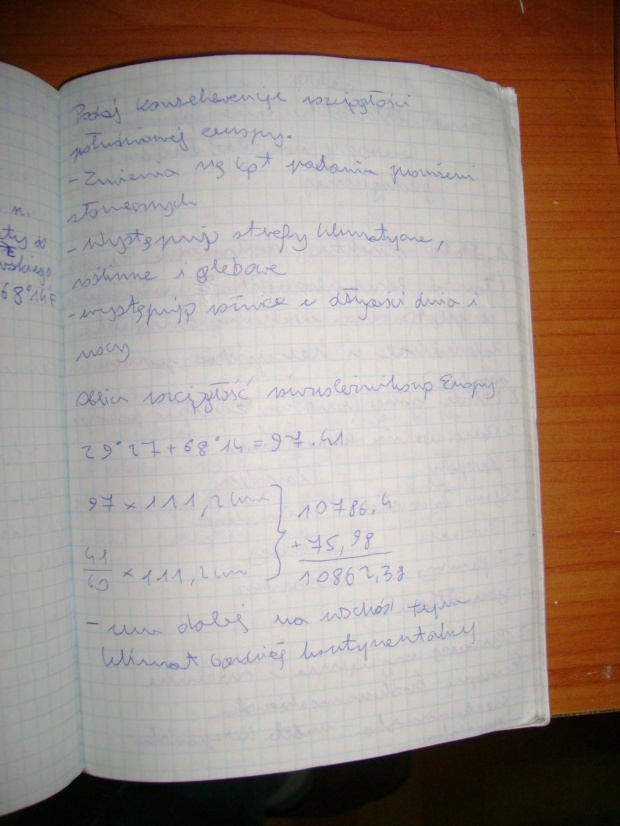 n.
do
E
wskiego
68°14'E
Podaj konsekwencje rozciągłości
południowej europy.
- Zmienia się kąt padania promieni
słonecznych
- występują strefy klimatyczne,
roślinne i glebowe
- występują różnice w długości dnia i
nocy
Oblicz rozciągłość równoleżnikową Europy
29°27+68°14=97.41
97 x 111,2 km } 10786,4
41/60 x 111,2 km + 75,98
10862,38
- im dalej na wschód tym
klimat bardziej kontynentalny